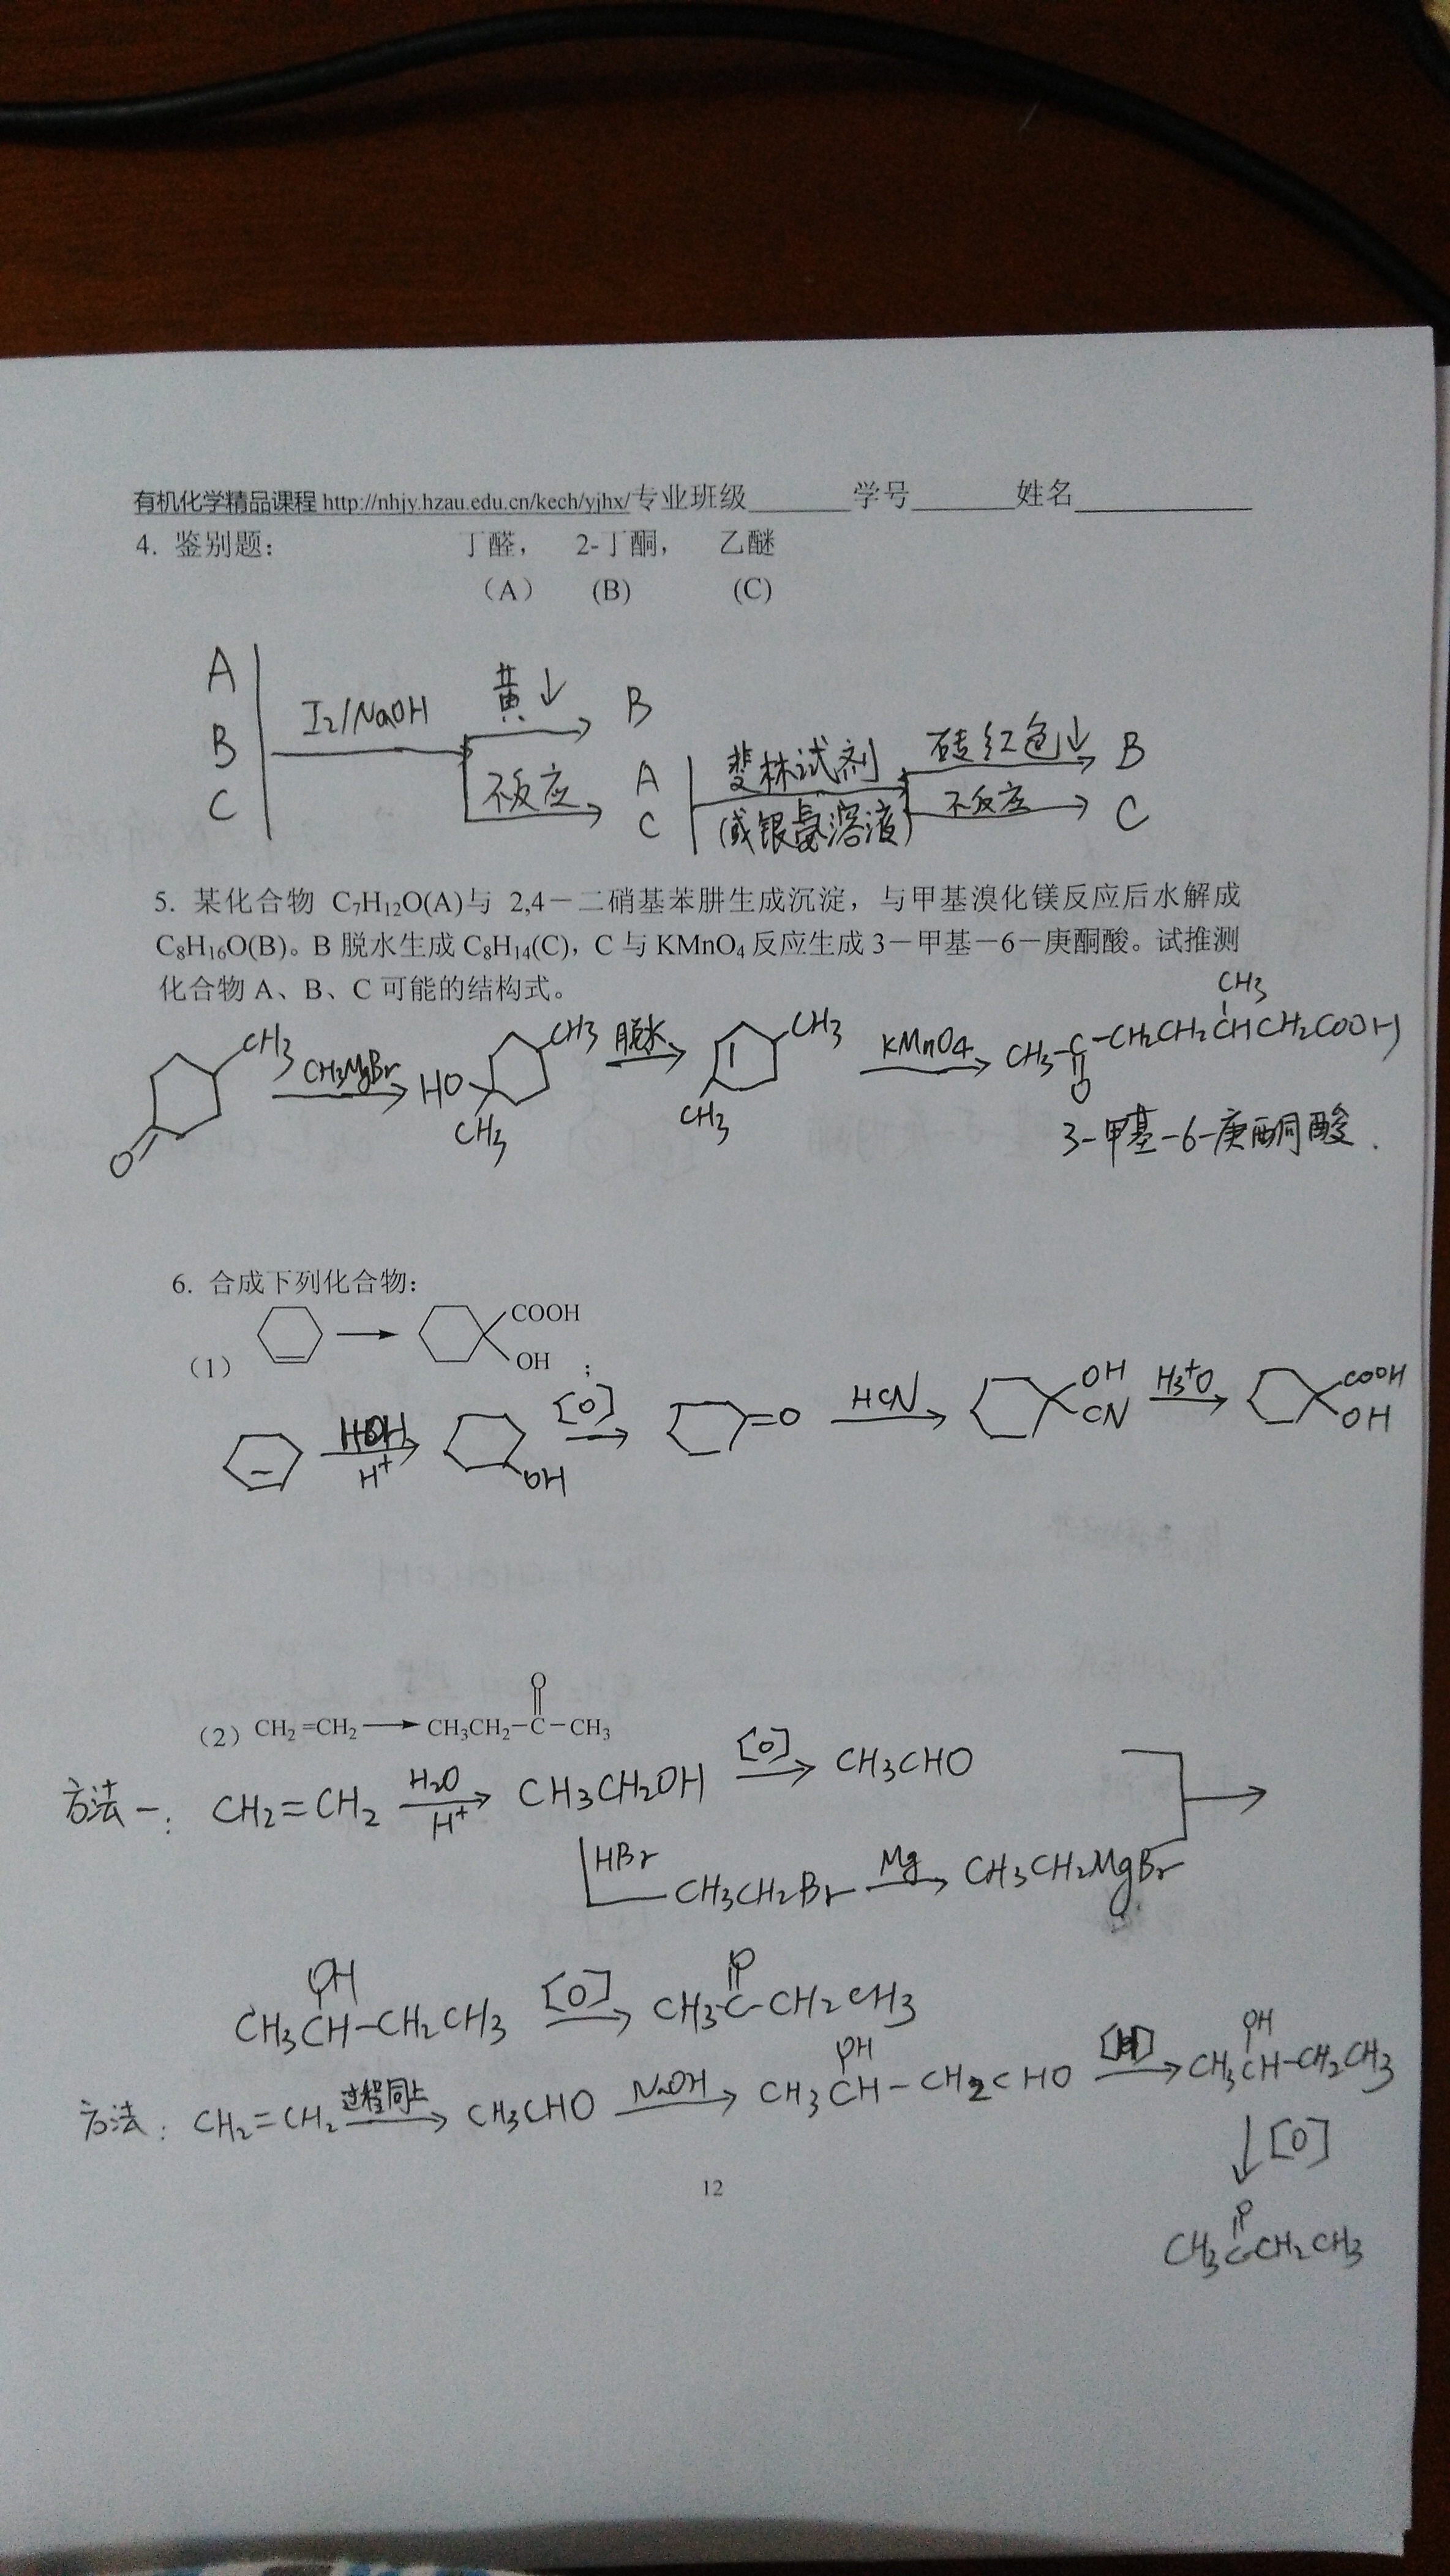 有机化学精品课程 http://nhjy.hzau.edu.cn/kech/yjhx/专业班级______学号______姓名__________
4. 鉴别题： 丁醛， 2-丁酮， 乙醚
（A） (B) (C)
A
B
C
I2/NaOH
黄↓ B
不反应 A
C
斐林试剂
(或银氨溶液)
砖红色↓ B
不反应 C
5. 某化合物 C7H12O(A)与 2,4－二硝基苯肼生成沉淀，与甲基溴化镁反应后水解成
C8H16O(B)。B 脱水生成 C8H14(C)，C 与 KMnO4 反应生成 3－甲基－6－庚酮酸。试推测
化合物 A、B、C 可能的结构式。
CH3
O CH3 CH3MgBr HO CH3 CH3 脱水 CH3 CH3 KMnO4 CH3-C-CH2CH2CHCH2COOH
O
3-甲基-6-庚酮酸.
6. 合成下列化合物：
（1） → COOH OH ；
HOH H+ OH [O] =O HCN OH CN H3+O COOH OH
O
（2）CH2=CH2 → CH3CH2-C-CH3
方法一: CH2=CH2 H2O H+ CH3CH2OH [O] CH3CHO
HBr CH3CH2Br Mg CH3CH2MgBr
OH O
CH3CH-CH2CH3 [O] CH3C-CH2CH3
OH OH
方法: CH2=CH2 过程同上 CH3CHO NaOH CH3CH-CH2CHO [H] CH3CH-CH2CH3
↓[O]
12
O
CH3CCH2CH3